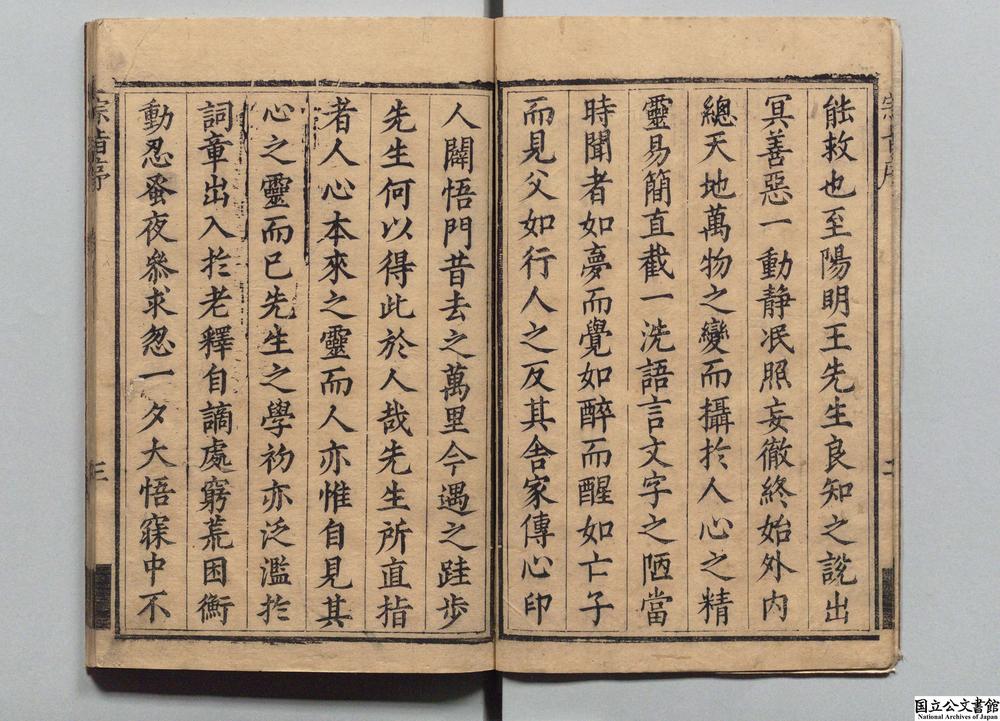 能救也至陽明王先生良知之說出
冥善惡一動靜泯照妄徹終始外内
總天地萬物之變而攝於人心之精
靈易簡直截一洗語言文字之陋當
時聞者如夢而覺如醉而醒如亡子
而見父如行人之反其舍家傳心印
人闢悟門昔去之萬里今遇之跬步
先生何以得此於人哉先生所直指
者人心本來之靈而人亦惟自見其
心之靈而已先生之學初亦泛濫於
詞章出入於老釋自謫處窮荒困衡
動忍蚤夜叅求忽一夕大悟寐中不
宗旨序
三
宗旨序
二
国立公文書館
National Archives of Japan